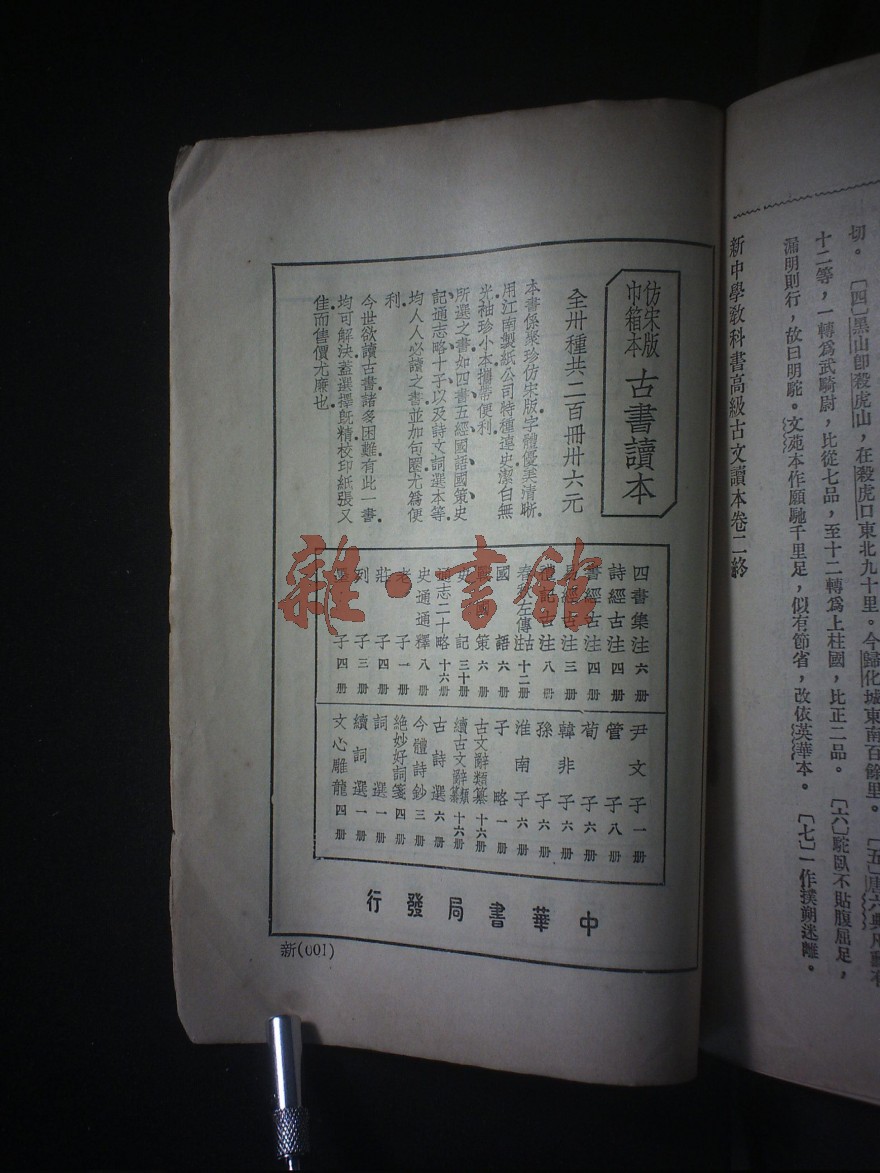 切。〔四〕黑山卽殺虎山，在殺虎口東北九十里。今歸化城東南百餘里。〔五〕唐六典凡勳
十二等，一轉爲武騎尉，比從七品，至十二轉爲上柱國，比正二品。〔六〕駝臥不貼腹屈足，
漏明則行，故曰明駝。文苑本作願馳千里足，似有節省，改依英華本。〔七〕一作撲朔迷離。
新中學敎科書高級古文讀本卷二終
仿宋版
巾箱本
古書讀本
全卅種共二百冊卅六元
本書係聚珍仿宋版字體優美清晰
用江南製紙公司特種連史潔白無
光袖珍小本攜帶便利
所選之書如四書五經國語國策史
記通志略十子以及詩文詞選本等
均人人必讀之書並加句圈尤爲便
利
今世欲讀古書諸多困難有此一書
均可解決蓋選擇旣精校印紙張又
佳而售價尤廉也
四書集注六冊
詩經古注四冊
書經古注四冊
易經古注三冊
禮記古注八冊
春秋左傳古注十二冊
國語六冊
戰國策六冊
史記三十冊
通志二十略十六冊
史通通釋八冊
老子一冊
莊子四冊
列子三冊
子四冊
尹文子一冊
管子八冊
荀子六冊
韓非子六冊
孫子六冊
淮南子六冊
子略一冊
古文辭類纂十六冊
續古文辭類纂十六冊
古詩選六冊
今體詩鈔三冊
絕妙好詞箋四冊
詞選一冊
續詞選一冊
文心雕龍四冊
中華書局發行
新(001)
雜·書館